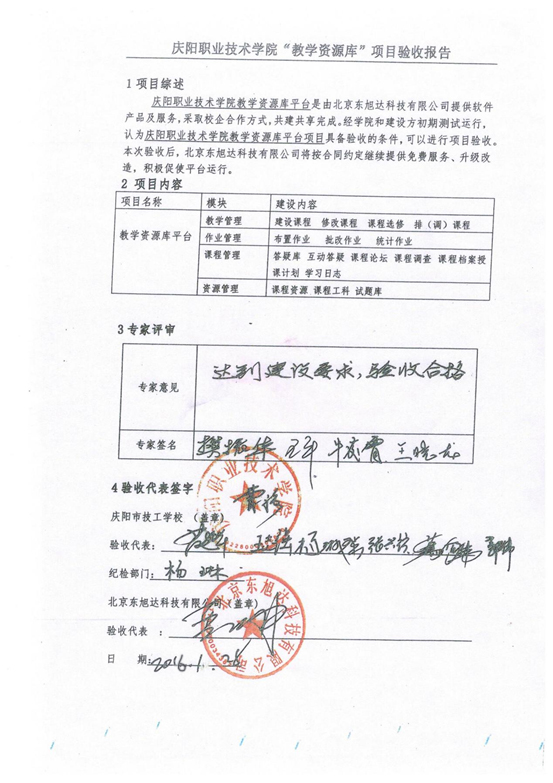 庆阳职业技术学院“教学资源库”项目验收报告
1 项目综述
庆阳职业技术学院教学资源库平台是由北京东旭达科技有限公司提供软件
产品及服务,采取校企合作方式,共建共享完成。经学院和建设方初期测试运行,
认为庆阳职业技术学院教学资源库平台项目具备验收的条件,可以进行项目验收。
本次验收后,北京东旭达科技有限公司将按合同约定继续提供免费服务、升级改
造,积极促使平台运行。
2 项目内容
项目名称 模块 建设内容
教学资源库平台 教学管理 建设课程 修改课程 课程选修 排(调)课程
作业管理 布置作业 批改作业 统计作业
课程管理 答疑库 互动答疑 课程论坛 课程调查 课程档案授
课计划 学习日志
资源管理 课程资源 课程工科 试题库
3 专家评审
专家意见 达到建设要求,验收合格
专家签名
4 验收代表签字
庆阳市技工学校 (盖章)
庆阳职业技术学院
验收代表:
纪检部门: 杨琳
北京东旭达科技有限公司(盖章)
北京东旭达科技有限公司
验收代表 :
日 期: 2016.1.26